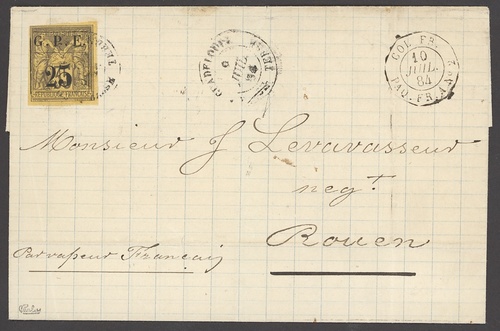 G. P. E.
25
REPUBLIQUE FRANCAISE
GUADELOUPE
JUIL
84
COL. FR.
10
JUIL.
84
PAQ. FR. A Nº2
Monsieur J Levavasseur
negt.
Rouen
Par vapeur Français